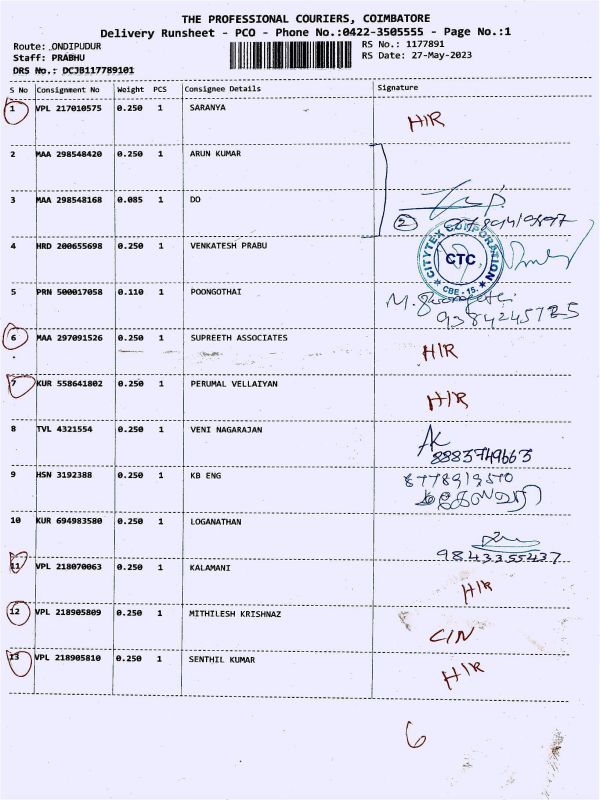 THE PROFESSIONAL COURIERS, COIMBATORE
Delivery Runsheet - PCO - Phone No.:0422-3505555 - Page No.:1
Route: ONDIPUDUR
RS No.: 1177891
Staff: PRABHU
RS Date: 27-May-2023
DRS No.: DCJB117789101
S No Consignment No Weight PCS Consignee Details Signature
1 VPL 217010575 0.250 1 SARANYA HIR
2 MAA 298548420 0.250 1 ARUN KUMAR
3 MAA 298548168 0.085 1 DO
2
4 HRD 200655698 0.250 1 VENKATESH PRABU
CITYTEX CORPORATION
CTC
CBE - 15.
5 PRN 500017058 0.110 1 POONGOTHAI
9384245785
6 MAA 297091526 0.250 1 SUPREETH ASSOCIATES HIR
7 KUR 558641802 0.250 1 PERUMAL VELLAIYAN HIR
8 TVL 4321554 0.250 1 VENI NAGARAJAN
8883749663
9 HSN 3192388 0.250 1 KB ENG 8778919570
10 KUR 694983580 0.250 1 LOGANATHAN
9843355437
11 VPL 218070063 0.250 1 KALAMANI HIR
12 VPL 218905809 0.250 1 MITHILESH KRISHNAZ C/N
13 VPL 218905810 0.250 1 SENTHIL KUMAR HIR
6